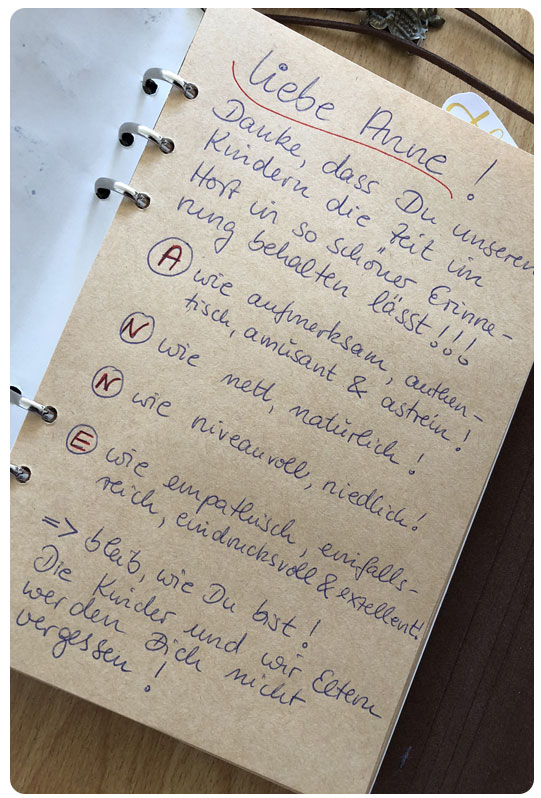 Liebe Anne!
Danke, dass Du unseren
Kindern die Zeit im
Hort in so schöner Erinne-
rung behalten lässt!!!
A wie aufmerksam, authen-
tisch, amüsant & astrein!
N wie nett, natürlich!
N wie niveauvoll, niedlich!
E wie empathisch, einfalls-
reich, eindrucksvoll & exzellent!
=> bleib, wie Du bist!
Die Kinder und wir Eltern
werden Dich nicht
vergessen!